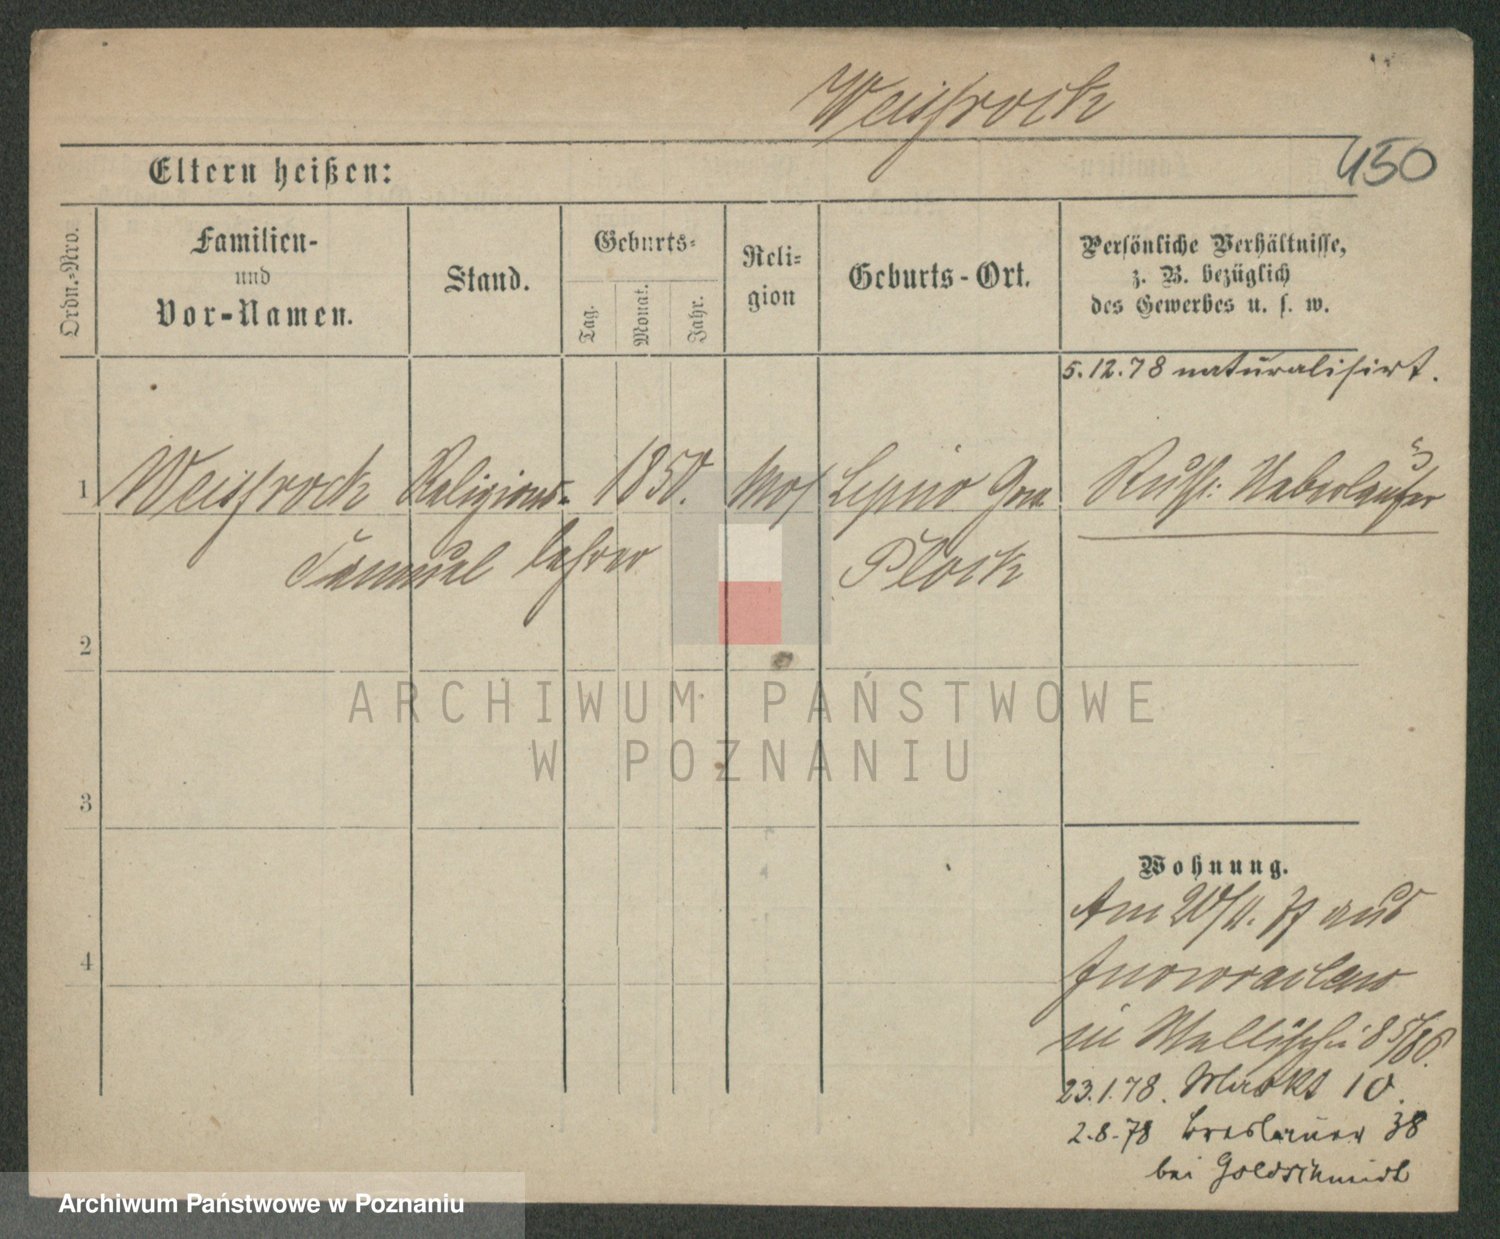 Weissrock
450
Eltern heißen:
Ordn.-Nro.
Familien-
und
Vor-Namen.
Stand.
Geburts-
Tag.
Monat.
Jahr.
Reli-
gion
Geburts-Ort.
Persönliche Verhältnisse,
z. B. bezüglich
des Gewerbes u. s. w.
5.12.78 naturalisirt.
1 Weissrock Religions- 1850. Mos Lipno Gou. Russ: Ueberläufer
Samuel lehrer Plock
2
3
4
Wohnung.
Am 20/11. 77 aus
Inowraclaw
in Wallischei 85/86.
23.1.78. Markt 10.
2.8.78 Breslauer 38
bei Goldschmidt
ARCHIWUM PAŃSTWOWE
W POZNANIU
Archiwum Państwowe w Poznaniu